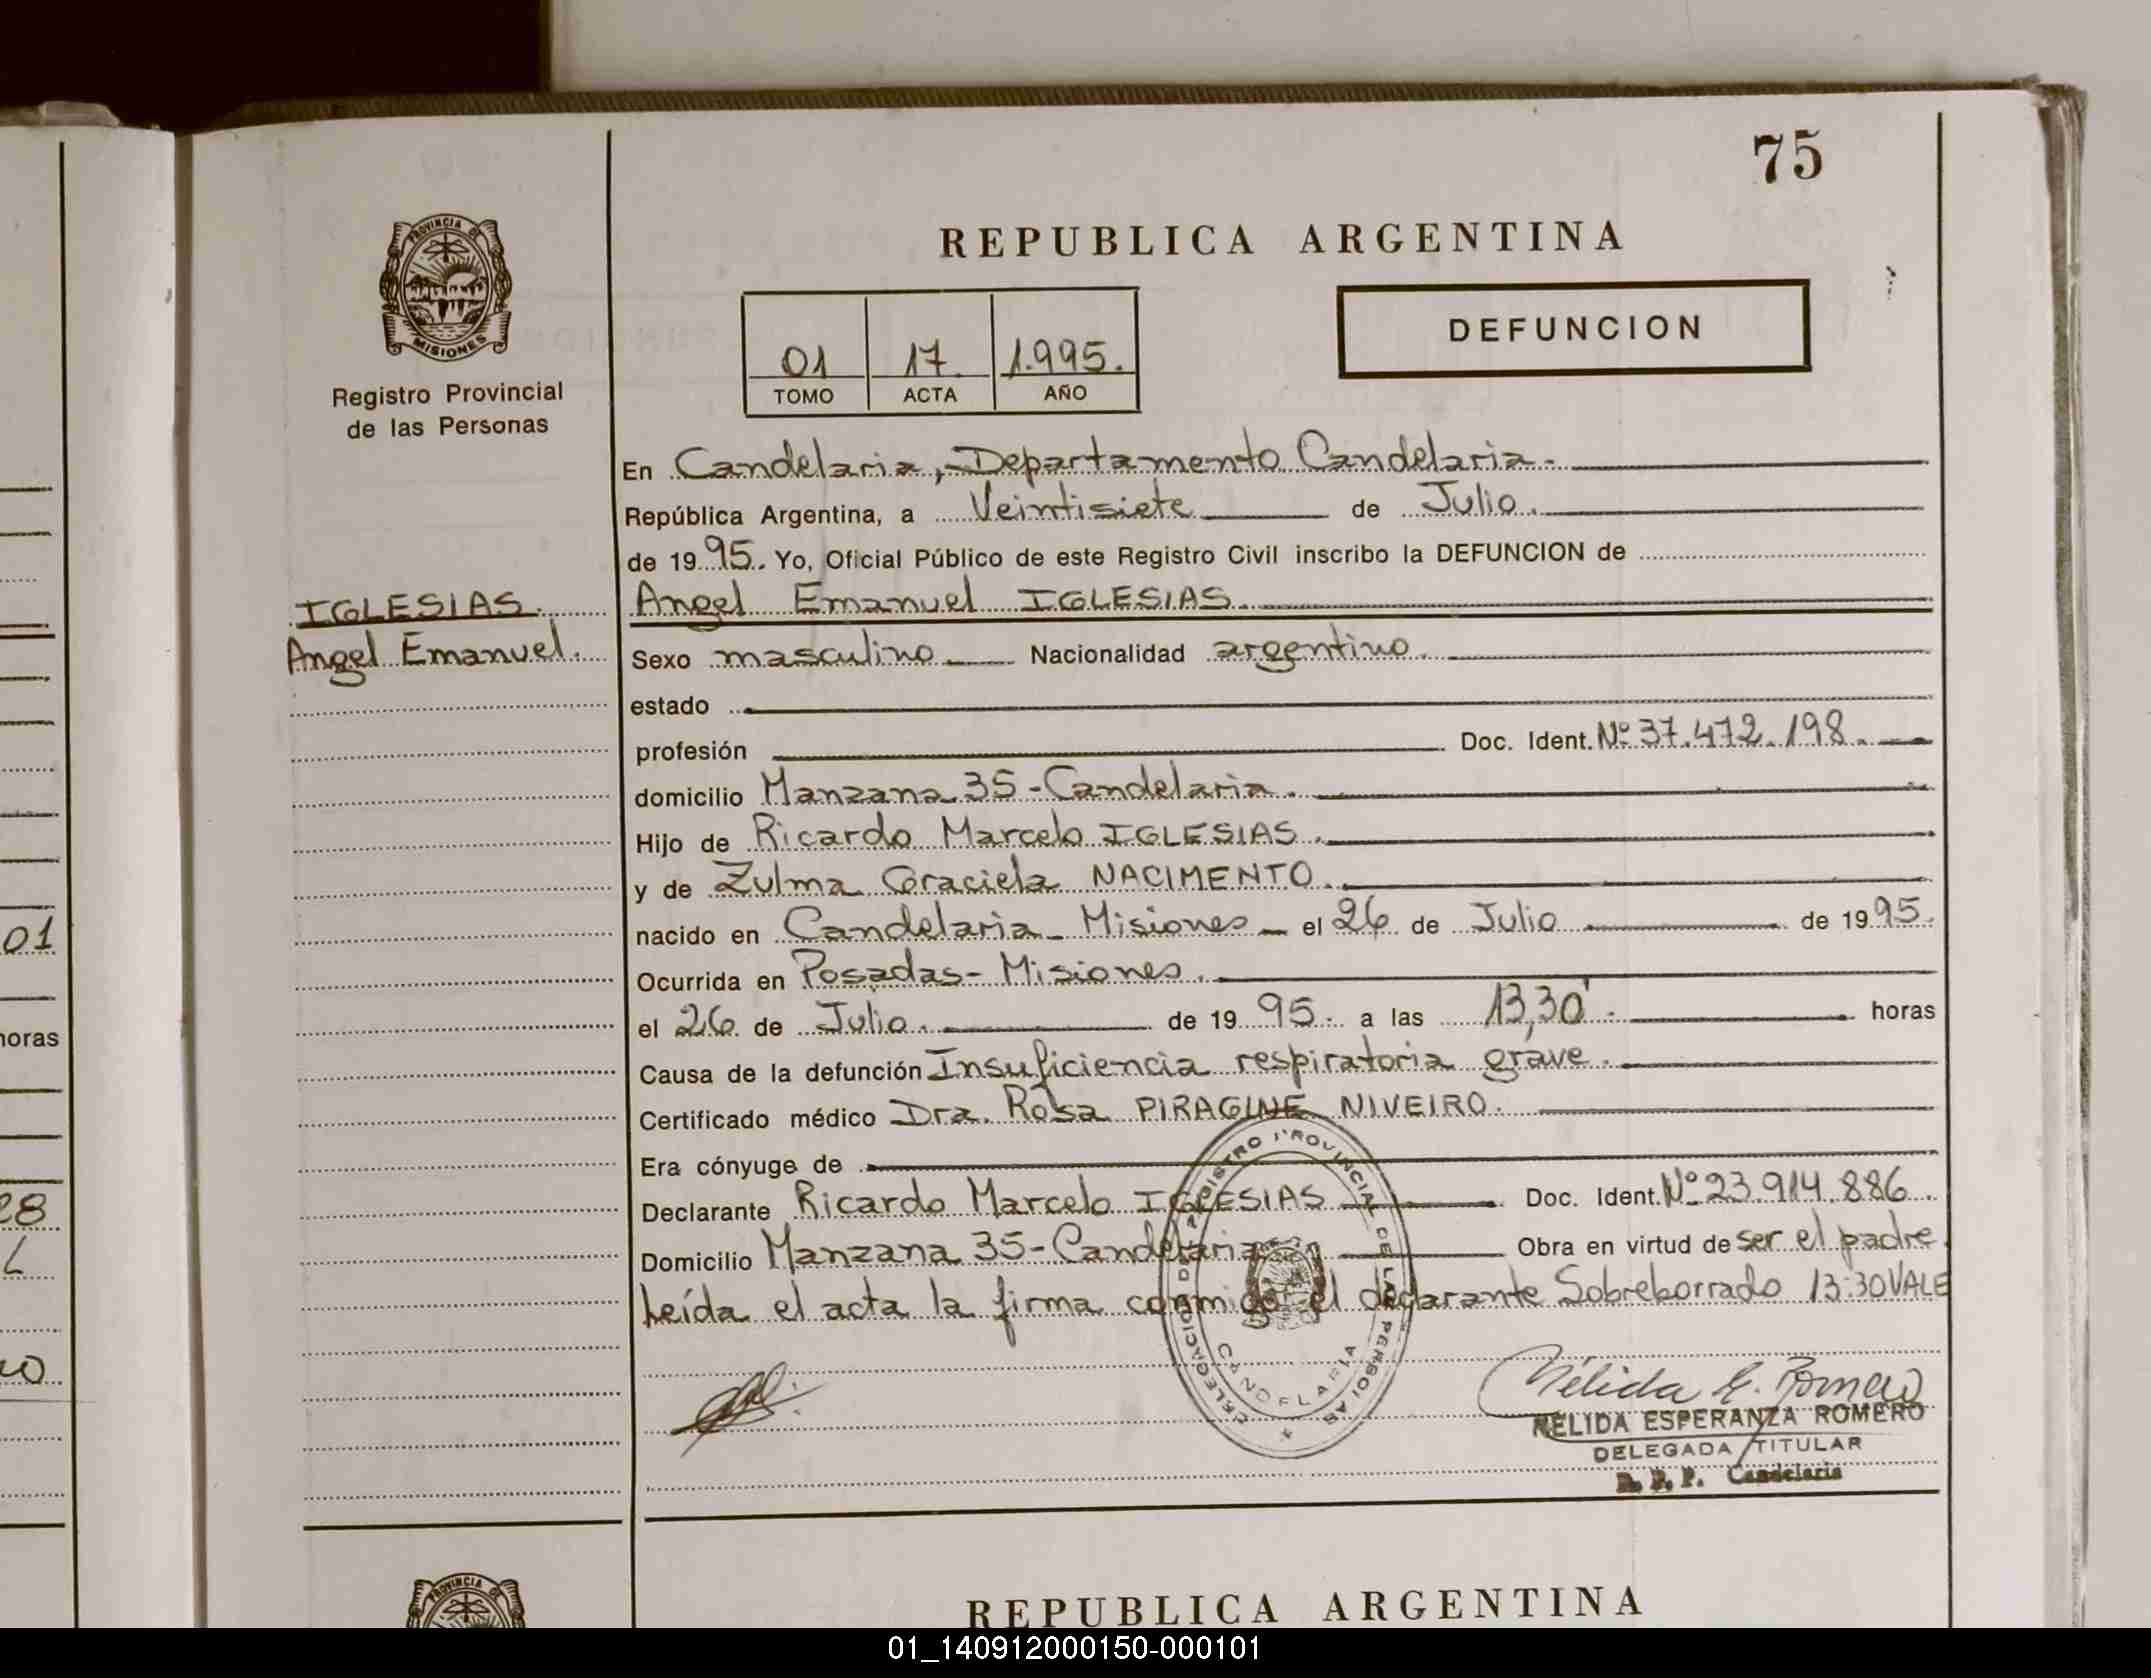 75
PROVINCIA DE
MISIONES
Registro Provincial
de las Personas
REPUBLICA ARGENTINA
DEFUNCION
01 17 1.995.
TOMO ACTA AÑO
En Candelaria, Departamento Candelaria.
República Argentina, a Veintisiete de Julio.
de 1995. Yo, Oficial Público de este Registro Civil inscribo la DEFUNCION de
IGLESIAS.
Angel Emanuel.
Angel Emanuel IGLESIAS.
Sexo masculino Nacionalidad argentino.
estado
profesión Doc. Ident. Nº 37.472.198.
domicilio Manzana 35-Candelaria.
Hijo de Ricardo Marcelo IGLESIAS.
y de Zulma Graciela NACIMENTO.
nacido en Candelaria - Misiones - el 26 de Julio de 1995.
Ocurrida en Posadas - Misiones.
el 26 de Julio. de 1995. a las 13,30'. horas
Causa de la defunción Insuficiencia respiratoria grave.
Certificado médico Dra. Rosa PIRAGINE NIVEIRO.
Era cónyuge de
Declarante Ricardo Marcelo IGLESIAS Doc. Ident. Nº 23.914.886.
Domicilio Manzana 35-Candelaria Obra en virtud de ser el padre.
Leída el acta la firma conmigo el declarante Sobreborrado 13:30 VALE
DELEGACION DEL REGISTRO PROVINCIAL DE LAS PERSONAS
CANDELARIA
Nélida E. Romero
NELIDA ESPERANZA ROMERO
DELEGADA TITULAR
R. P. P. Candelaria
01
horas
28
L
PROVINCIA DE
REPUBLICA ARGENTINA
01_140912000150-000101